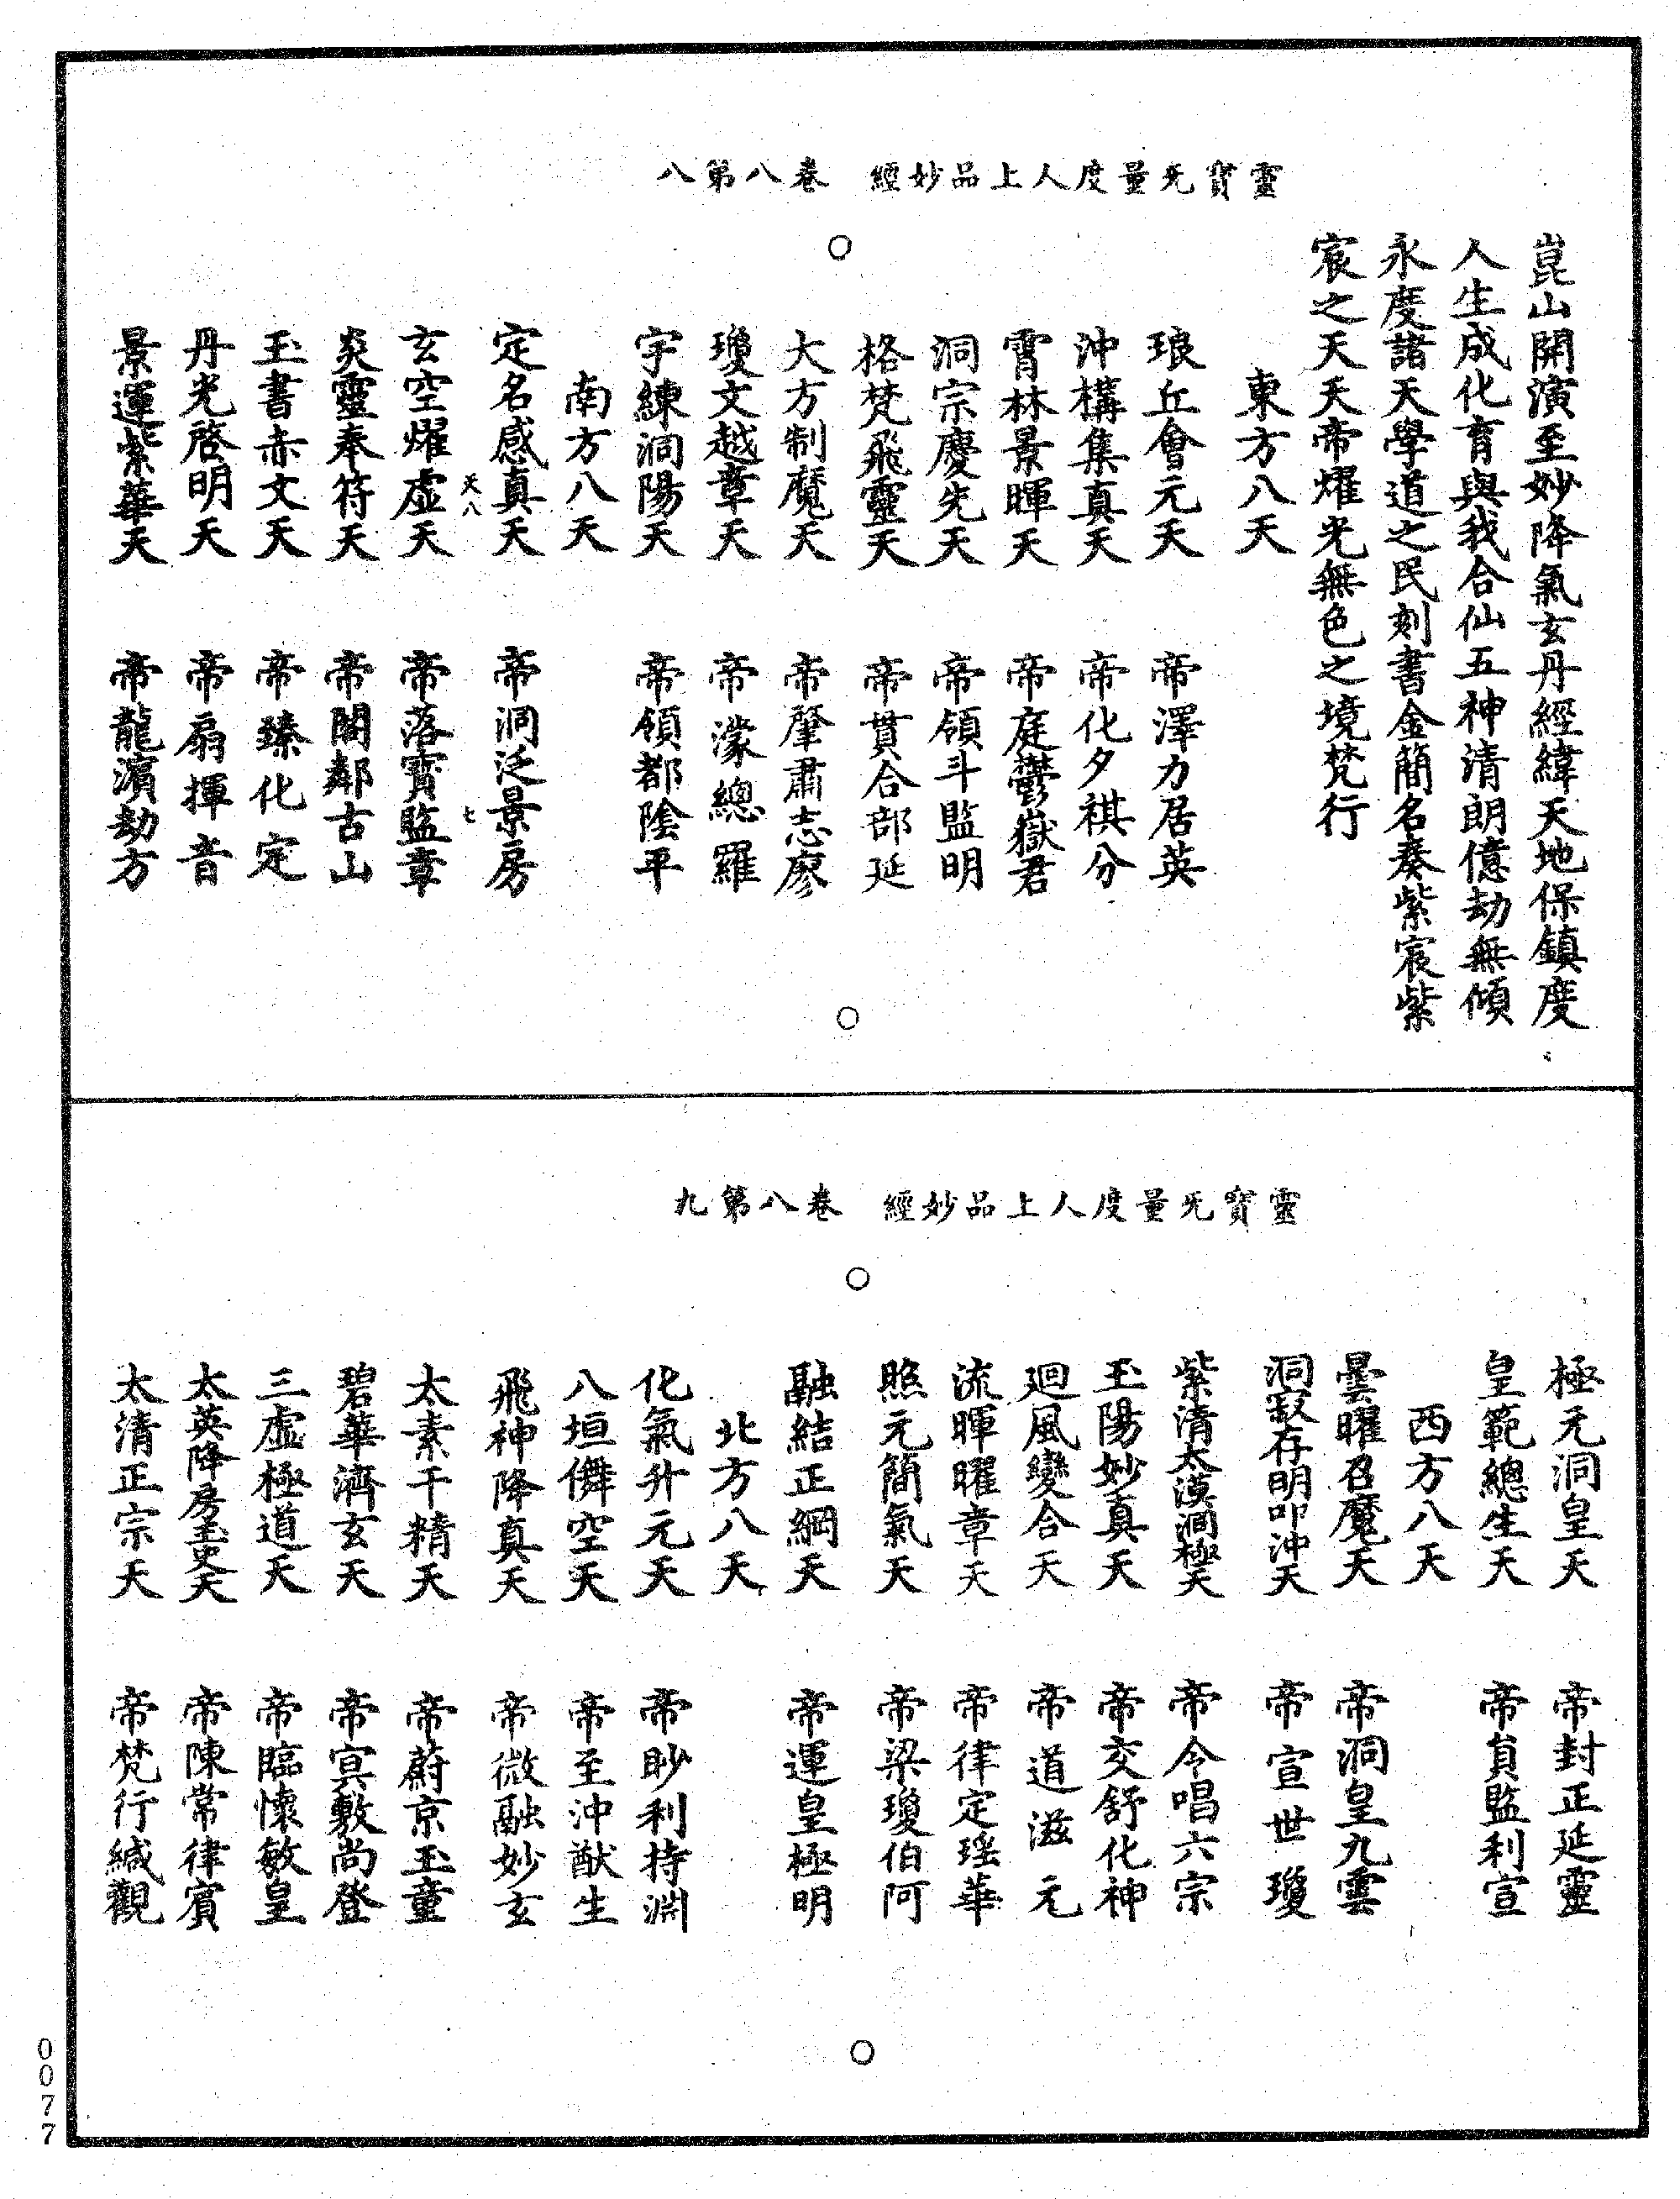 靈寶旡量度人上品妙經　卷八第八
崑山開演至妙降氣玄丹經緯天地保鎮度
人生成化育與我合仙五神清朗億劫無傾
永度諸天學道之民刻書金簡名奏紫宸紫
宸之天天帝燿光無色之境梵行
東方八天
琅丘會元天　帝澤力居英
沖構集真天　帝化夕祺分
霄林景暉天　帝庭鬱嶽君
洞宗慶先天　帝領斗監明
格梵飛靈天　帝貫合部延
大方制魔天　帝肇肅志廖
瓊文越章天　帝濛總羅
宇練洞陽天　帝領都陰平
南方八天
定名感真天　帝洞泛景房
天八　七
玄空燿虛天　帝落寶監章
炎靈奉符天　帝閣鄰古山
玉書赤文天　帝臻化定
丹光啓明天　帝扇揮音
景運紫華天　帝龍濱劫方
靈寶旡量度人上品妙經　卷八第九
極元洞皇天　帝封正延靈
皇範總生天　帝負監利宣
西方八天
曇曜召魔天　帝洞皇九雲
洞寂存明叩沖天　帝宣世瓊
紫清太漠洞極天　帝今唱六宗
玉陽妙真天　帝交舒化神
廻風變合天　帝道滋元
流暉曜章天　帝律定瑶華
照元簡氣天　帝梁瓊伯阿
融結正綱天　帝運皇極明
北方八天
化氣升元天　帝眇利持渊
八垣儛空天　帝至沖猷生
飛神降真天　帝微融妙玄
太素干精天　帝蔚京玉童
碧華濟玄天　帝冥敷尚登
三虛極道天　帝臨懷敏皇
太英降房玉史天　帝陳常律賓
太清正宗天　帝梵行緘觀
0077